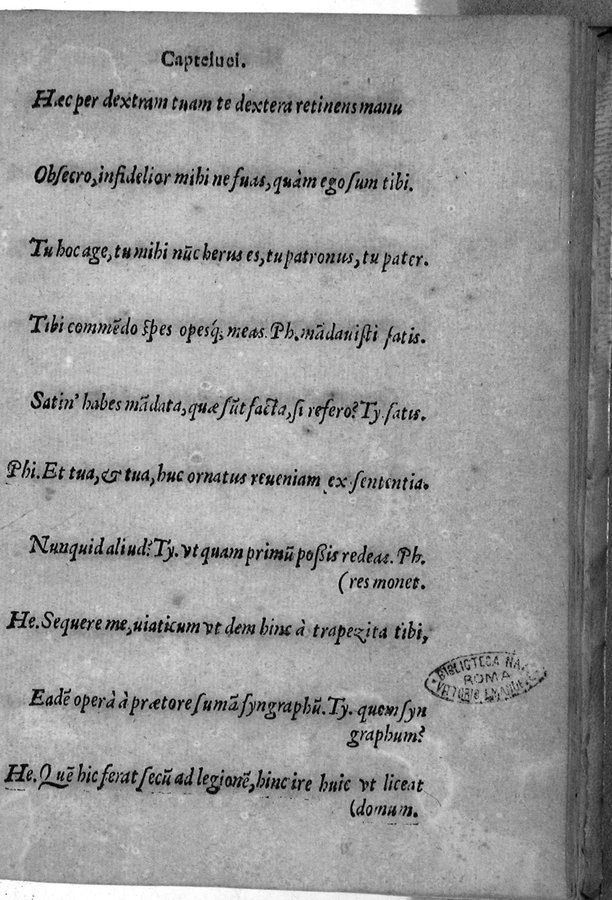 Capteiuei.
Hæc per dextram tuam te dextera retinens manu
Obsecro, infidelior mihi ne fuas, quàm ego sum tibi.
Tu hoc age, tu mihi nũc herus es, tu patronus, tu pater.
Tibi commẽdo spes opesq́; meas. Ph. mãdauisti satis.
Satin' habes mãdata, quæ sũt facta, si refero? Ty. satis.
Phi. Et tua, & tua, huc ornatus reueniam ex sententia.
Nunquid aliud? Ty. vt quam primũ poßis redeas. Ph.
(res monet.
He. Sequere me, uiaticum vt dem hinc à trapezita tibi,
Eadẽ operà à prætore sumã syngraphũ. Ty. quem syn
graphum?
He. Quẽ hic ferat secũ ad legionẽ, hinc ire huic vt liceat
(domum.
BIBLIOTECA NAZ.
ROMA
VITTORIO EMANUELE